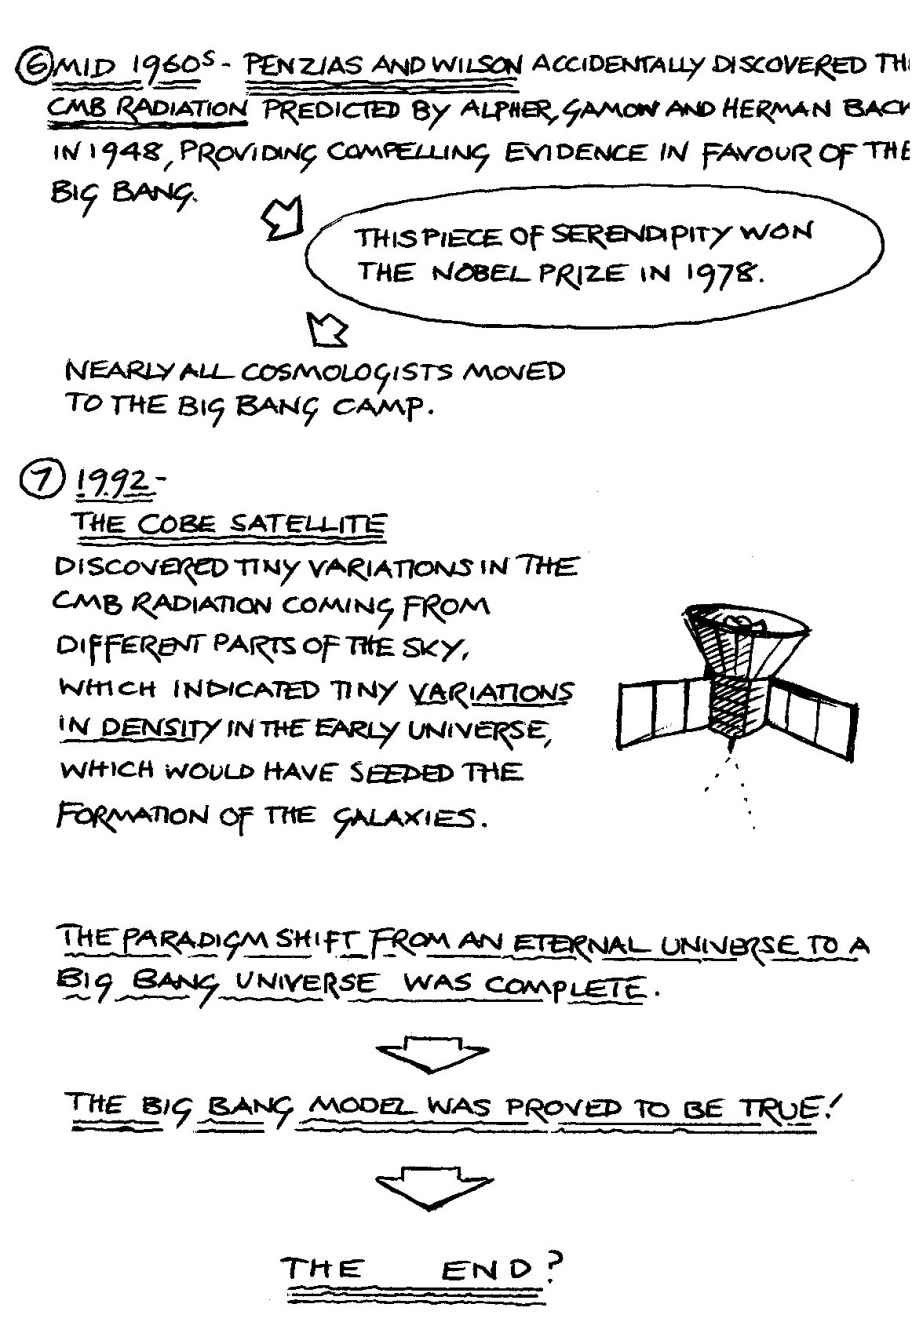 ⑥ MID 1960s - PENZIAS AND WILSON ACCIDENTALLY DISCOVERED TH
CMB RADIATION PREDICTED BY ALPHER, GAMOW AND HERMAN BACK
IN 1948, PROVIDING COMPELLING EVIDENCE IN FAVOUR OF THE
BIG BANG.
THIS PIECE OF SERENDIPITY WON
THE NOBEL PRIZE IN 1978.
NEARLY ALL COSMOLOGISTS MOVED
TO THE BIG BANG CAMP.
⑦ 1992 -
THE COBE SATELLITE
DISCOVERED TINY VARIATIONS IN THE
CMB RADIATION COMING FROM
DIFFERENT PARTS OF THE SKY,
WHICH INDICATED TINY VARIATIONS
IN DENSITY IN THE EARLY UNIVERSE,
WHICH WOULD HAVE SEEDED THE
FORMATION OF THE GALAXIES.
THE PARADIGM SHIFT FROM AN ETERNAL UNIVERSE TO A
BIG BANG UNIVERSE WAS COMPLETE.
THE BIG BANG MODEL WAS PROVED TO BE TRUE!
THE END?